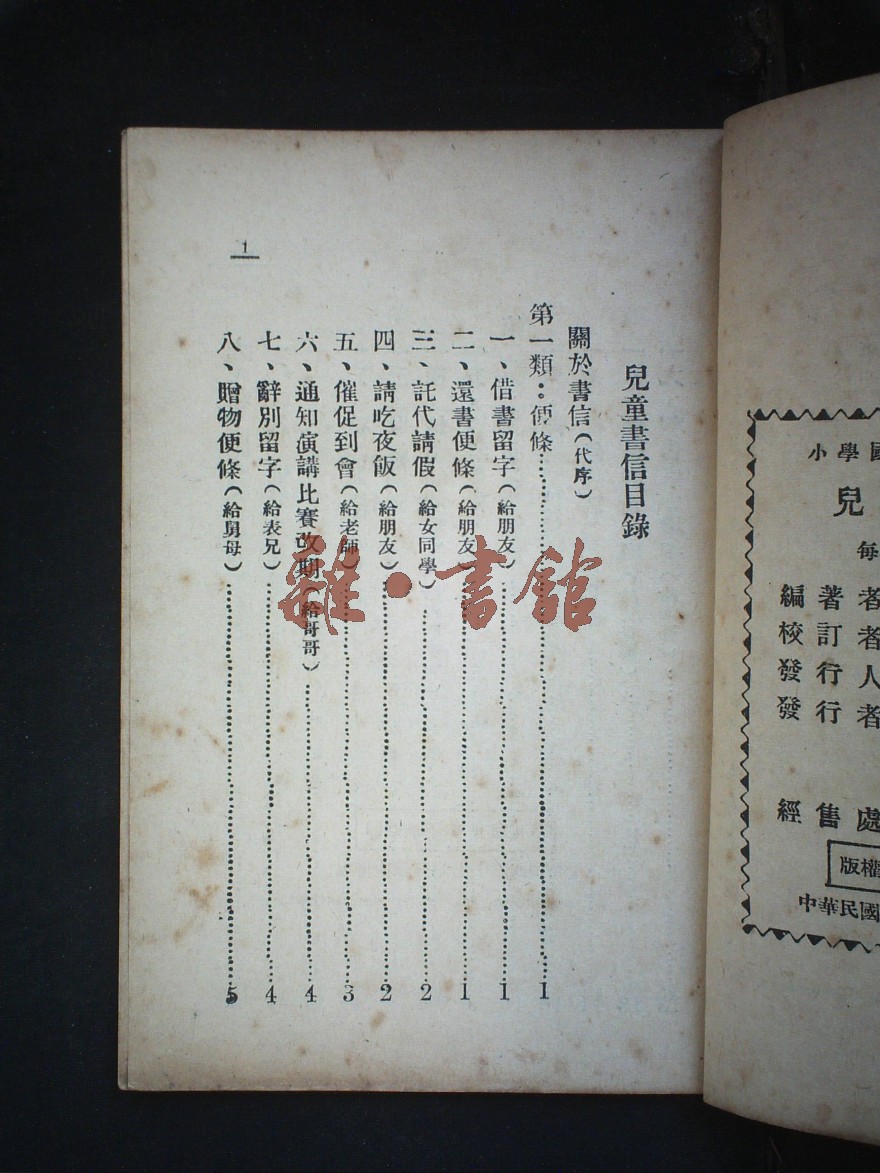 兒童書信目錄
關於書信(代序)
第一類：便條……1
一、借書留字(給朋友)……1
二、還書便條(給朋友)……1
三、託代請假(給女同學)……2
四、請吃夜飯(給朋友)……2
五、催促到會(給老師)……3
六、通知演講比賽改期(給哥哥)……4
七、辭別留字(給表兄)……4
八、贈物便條(給舅母)……5
1
雜·書館
小學國
兒
每
編著者
校訂者
發行人
發行者
經售處
版權
中華民國